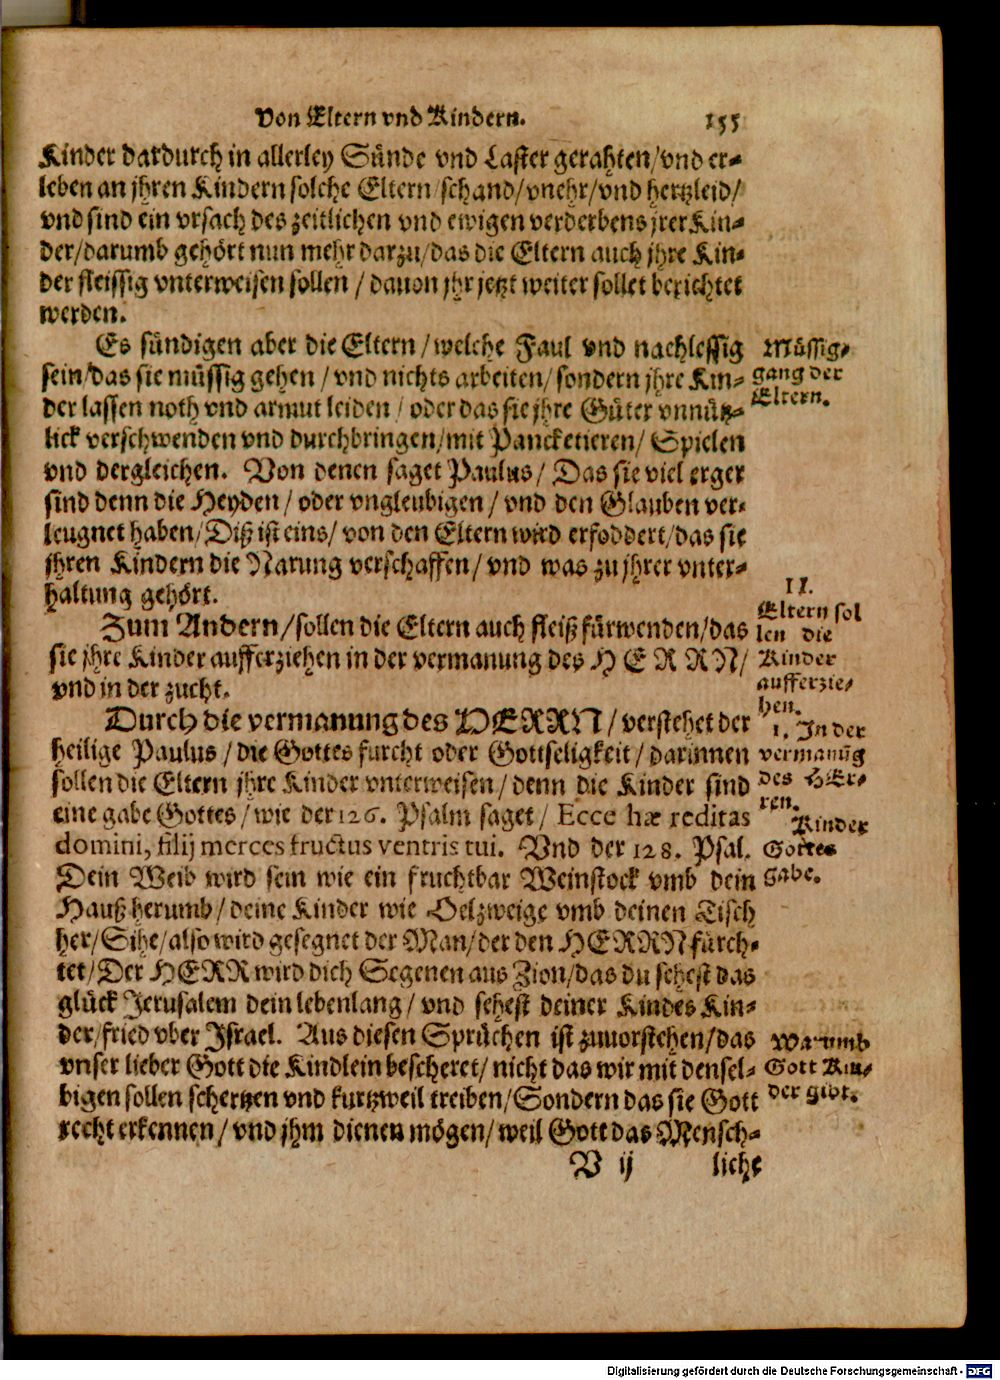 Von Eltern vnd Kindern. 155
Kinder dardurch in allerley Sünde vnd Laster gerahten/vnd er-
leben an jhren Kindern solche Eltern schand/vnehr/vnd hertzleid/
vnd sind ein vrsach des zeitlichen vnd ewigen verderbens jrer Kin-
der/darumb gehört nun mehr darzu/das die Eltern auch jhre Kin-
der fleissig vnterweisen sollen / dauon jhr jetzt weiter sollet berichtet
werden.
Es sündigen aber die Eltern/welche Faul vnd nachlessig
sein/das sie müssig gehen / vnd nichts arbeiten/sondern jhre Kin-
der lassen noth vnd armut leiden / oder das sie jhre Güter vnnütz-
lick verschwenden vnd durchbringen/mit Pancketieren/ Spielen
vnd dergleichen. Von denen saget Paulus/ Das sie viel erger
sind denn die Heyden/ oder vngleubigen / vnd den Glauben ver-
leugnet haben/Diß ist eins/ von den Eltern wird erfoddert/das sie
jhren Kindern die Narung verschaffen/ vnd was zu jhrer vnter-
haltung gehört.
Müssig-
gang der
Eltern.
Zum Andern/sollen die Eltern auch fleiß fürwenden/das
sie jhre Kinder aufferziehen in der vermanung des HERRN/
vnd in der zucht.
II.
Eltern sol
len die
Kinder
aufferzie-
hen.
Durch die vermanung des HERRN/verstehet der
heilige Paulus / die Gottes furcht oder Gottseligkeit/ darinnen
sollen die Eltern jhre Kinder vnterweisen/ denn die Kinder sind
eine gabe Gottes/wie der 126. Psalm saget/ Ecce hæ reditas
domini, filij merces fructus ventris tui. Vnd der 128. Psal.
Dein Weib wird sein wie ein fruchtbar Weinstock vmb dein
Hauß herumb/deine Kinder wie Oelzweige vmb deinen Tisch
her/Sihe/also wird gesegnet der Man/der den HERRN fürch-
tet/Der HERR wird dich Segenen aus Zion/das du sehest das
glück Jerusalem dein lebenlang/ vnd sehest deiner Kindes Kin-
der/fried vber Israel. Aus diesen Sprüchen ist zuuorstehen/das
vnser lieber Gott die Kindlein bescheret/ nicht das wir mit densel-
bigen sollen schertzen vnd kurtzweil treiben/Sondern das sie Gott
recht erkennen/vnd jhm dienen mögen/ weil Gott das Mensch-
1. In der
vermanūg
des HEr-
ren.
Kinder
Gottes
gabe.
Warumb
Gott Kin-
der gibt.
V ij liche
Digitalisierung gefördert durch die Deutsche Forschungsgemeinschaft - DFG